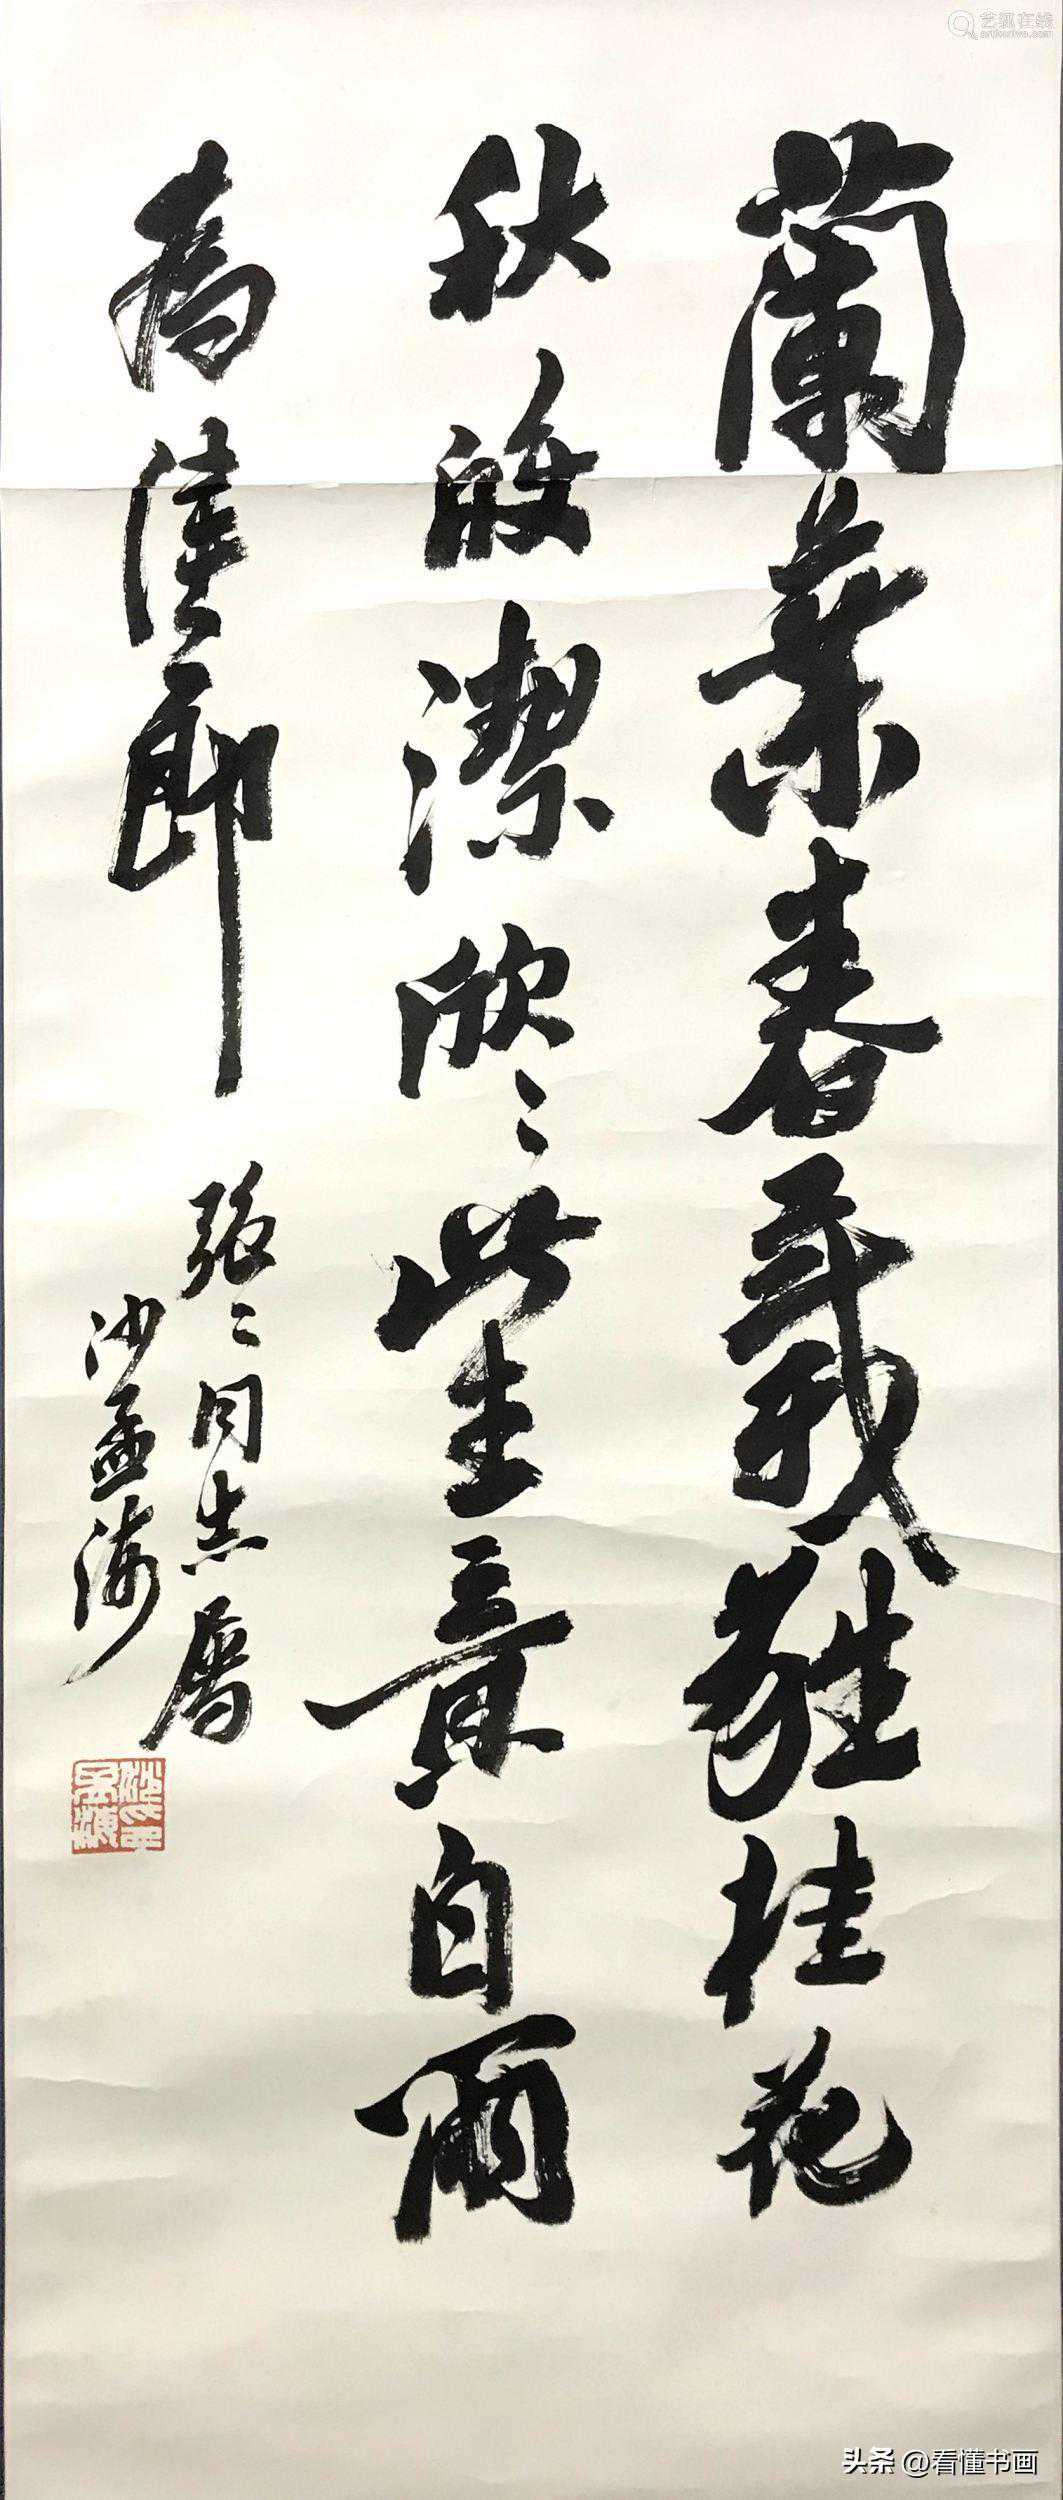 艺狐在线
artfoxlive.com
蘭葉春葳蕤桂花
秋皎潔欣〻此生意自爾
為佳節
同志屬
沙孟海
头条 @看懂书画